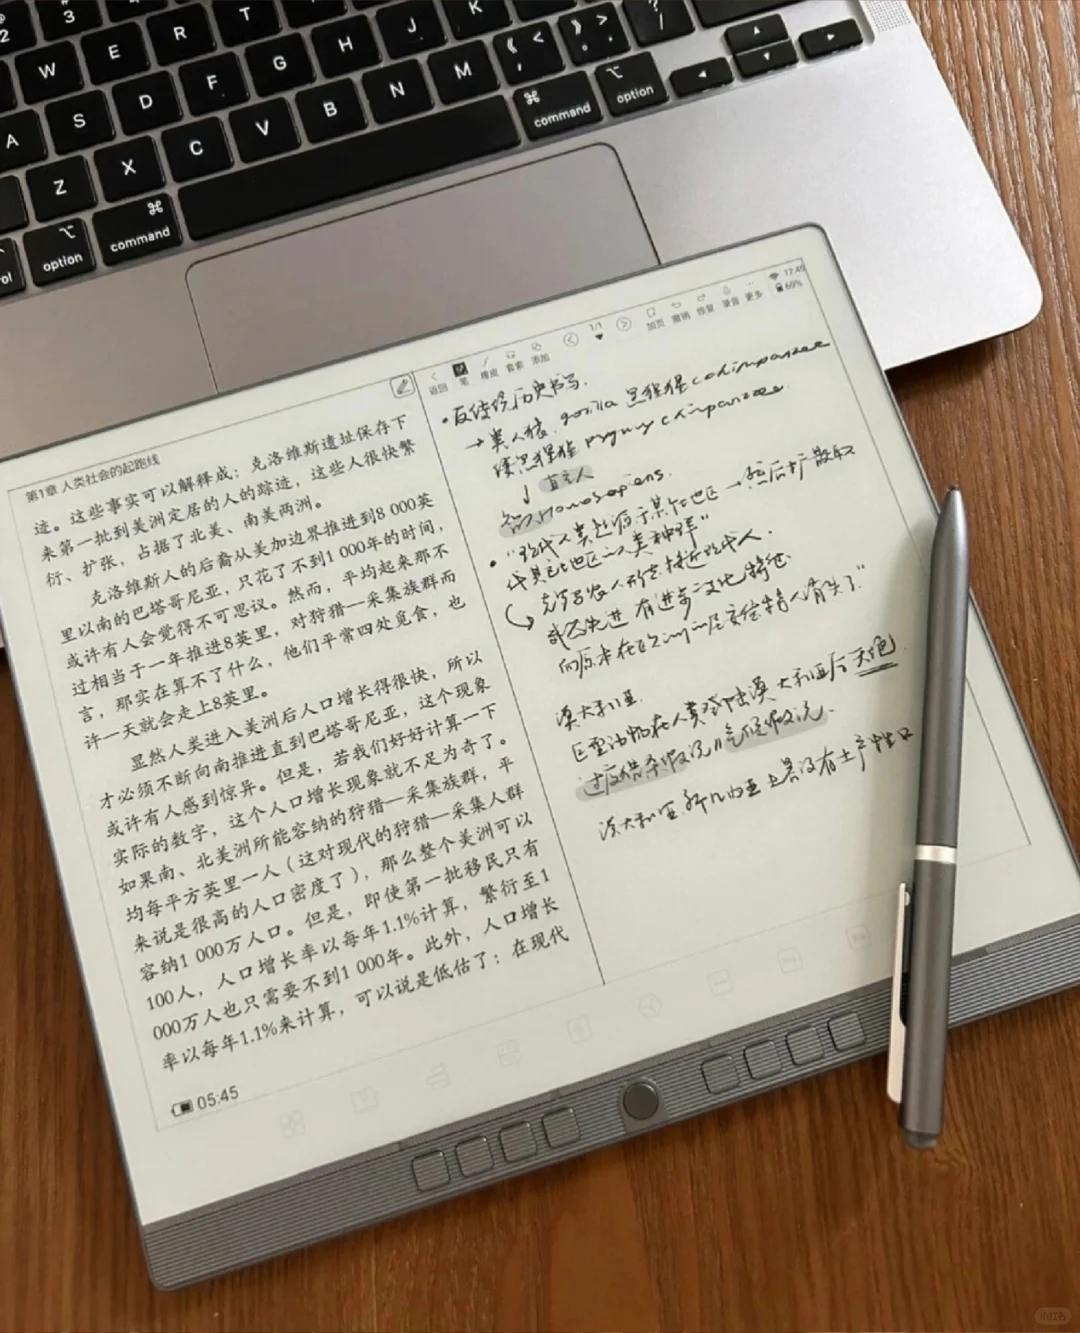 2
3
W
E
R
T
J
K
A
S
D
F
G
H
Z
X
C
V
B
N
M
《 <
》 >
? /
command
option
option
command
第1章 人类社会的起跑线
这些事实可以解释成：克洛维斯遗址保存下
来第一批到美洲定居的人的踪迹，这些人很快繁
衍、扩张，占据了北美、南美两洲。
克洛维斯人的后裔从美加边界推进到8 000英
里以南的巴塔哥尼亚，只花了不到1 000年的时间，
或许有人会觉得不可思议。然而，平均起来那不
过相当于一年推进8英里，对狩猎—采集族群而
言，那实在算不了什么，他们平常四处觅食，也
许一天就会走上8英里。
显然人类进入美洲后人口增长得很快，所以
才必须不断向南推进直到巴塔哥尼亚，这个现象
或许有人感到惊异。但是，若我们好好计算一下
实际的数字，这个人口增长现象就不足为奇了。
如果南、北美洲所能容纳的狩猎—采集族群，平
均每平方英里一人（这对现代的狩猎—采集人群
来说是很高的人口密度了），那么整个美洲可以
容纳1 000万人口。但是，即使第一批移民只有
100人，人口增长率以每年1.1%计算，繁衍至1
000万人也只需要不到1 000年。此外，人口增长
率以每年1.1%来计算，可以说是低估了：在现代
05:45
17:45
69%
返回 笔 橡皮 套索 添加 1/1 加页 撤销 恢复 录音 更多
·反传统历史书写.
→ 类人猿. gorilla 黑猩猩 chimpanzee
倭黑猩猩 pygmy chimpanzee
↓ 直立人
智人 Homo sapiens.
"现代人类起源于某个地区 → 然后扩散取
代其它地区的人类种群"
克罗马农人形态接近现代人.
有进步文化特征
澳大利亚.
巨型动物在人类登陆澳大利亚后灭绝
过度猎杀假说 // 气候假说.
澳大利亚.新几内亚 没有土产牲口
小红书